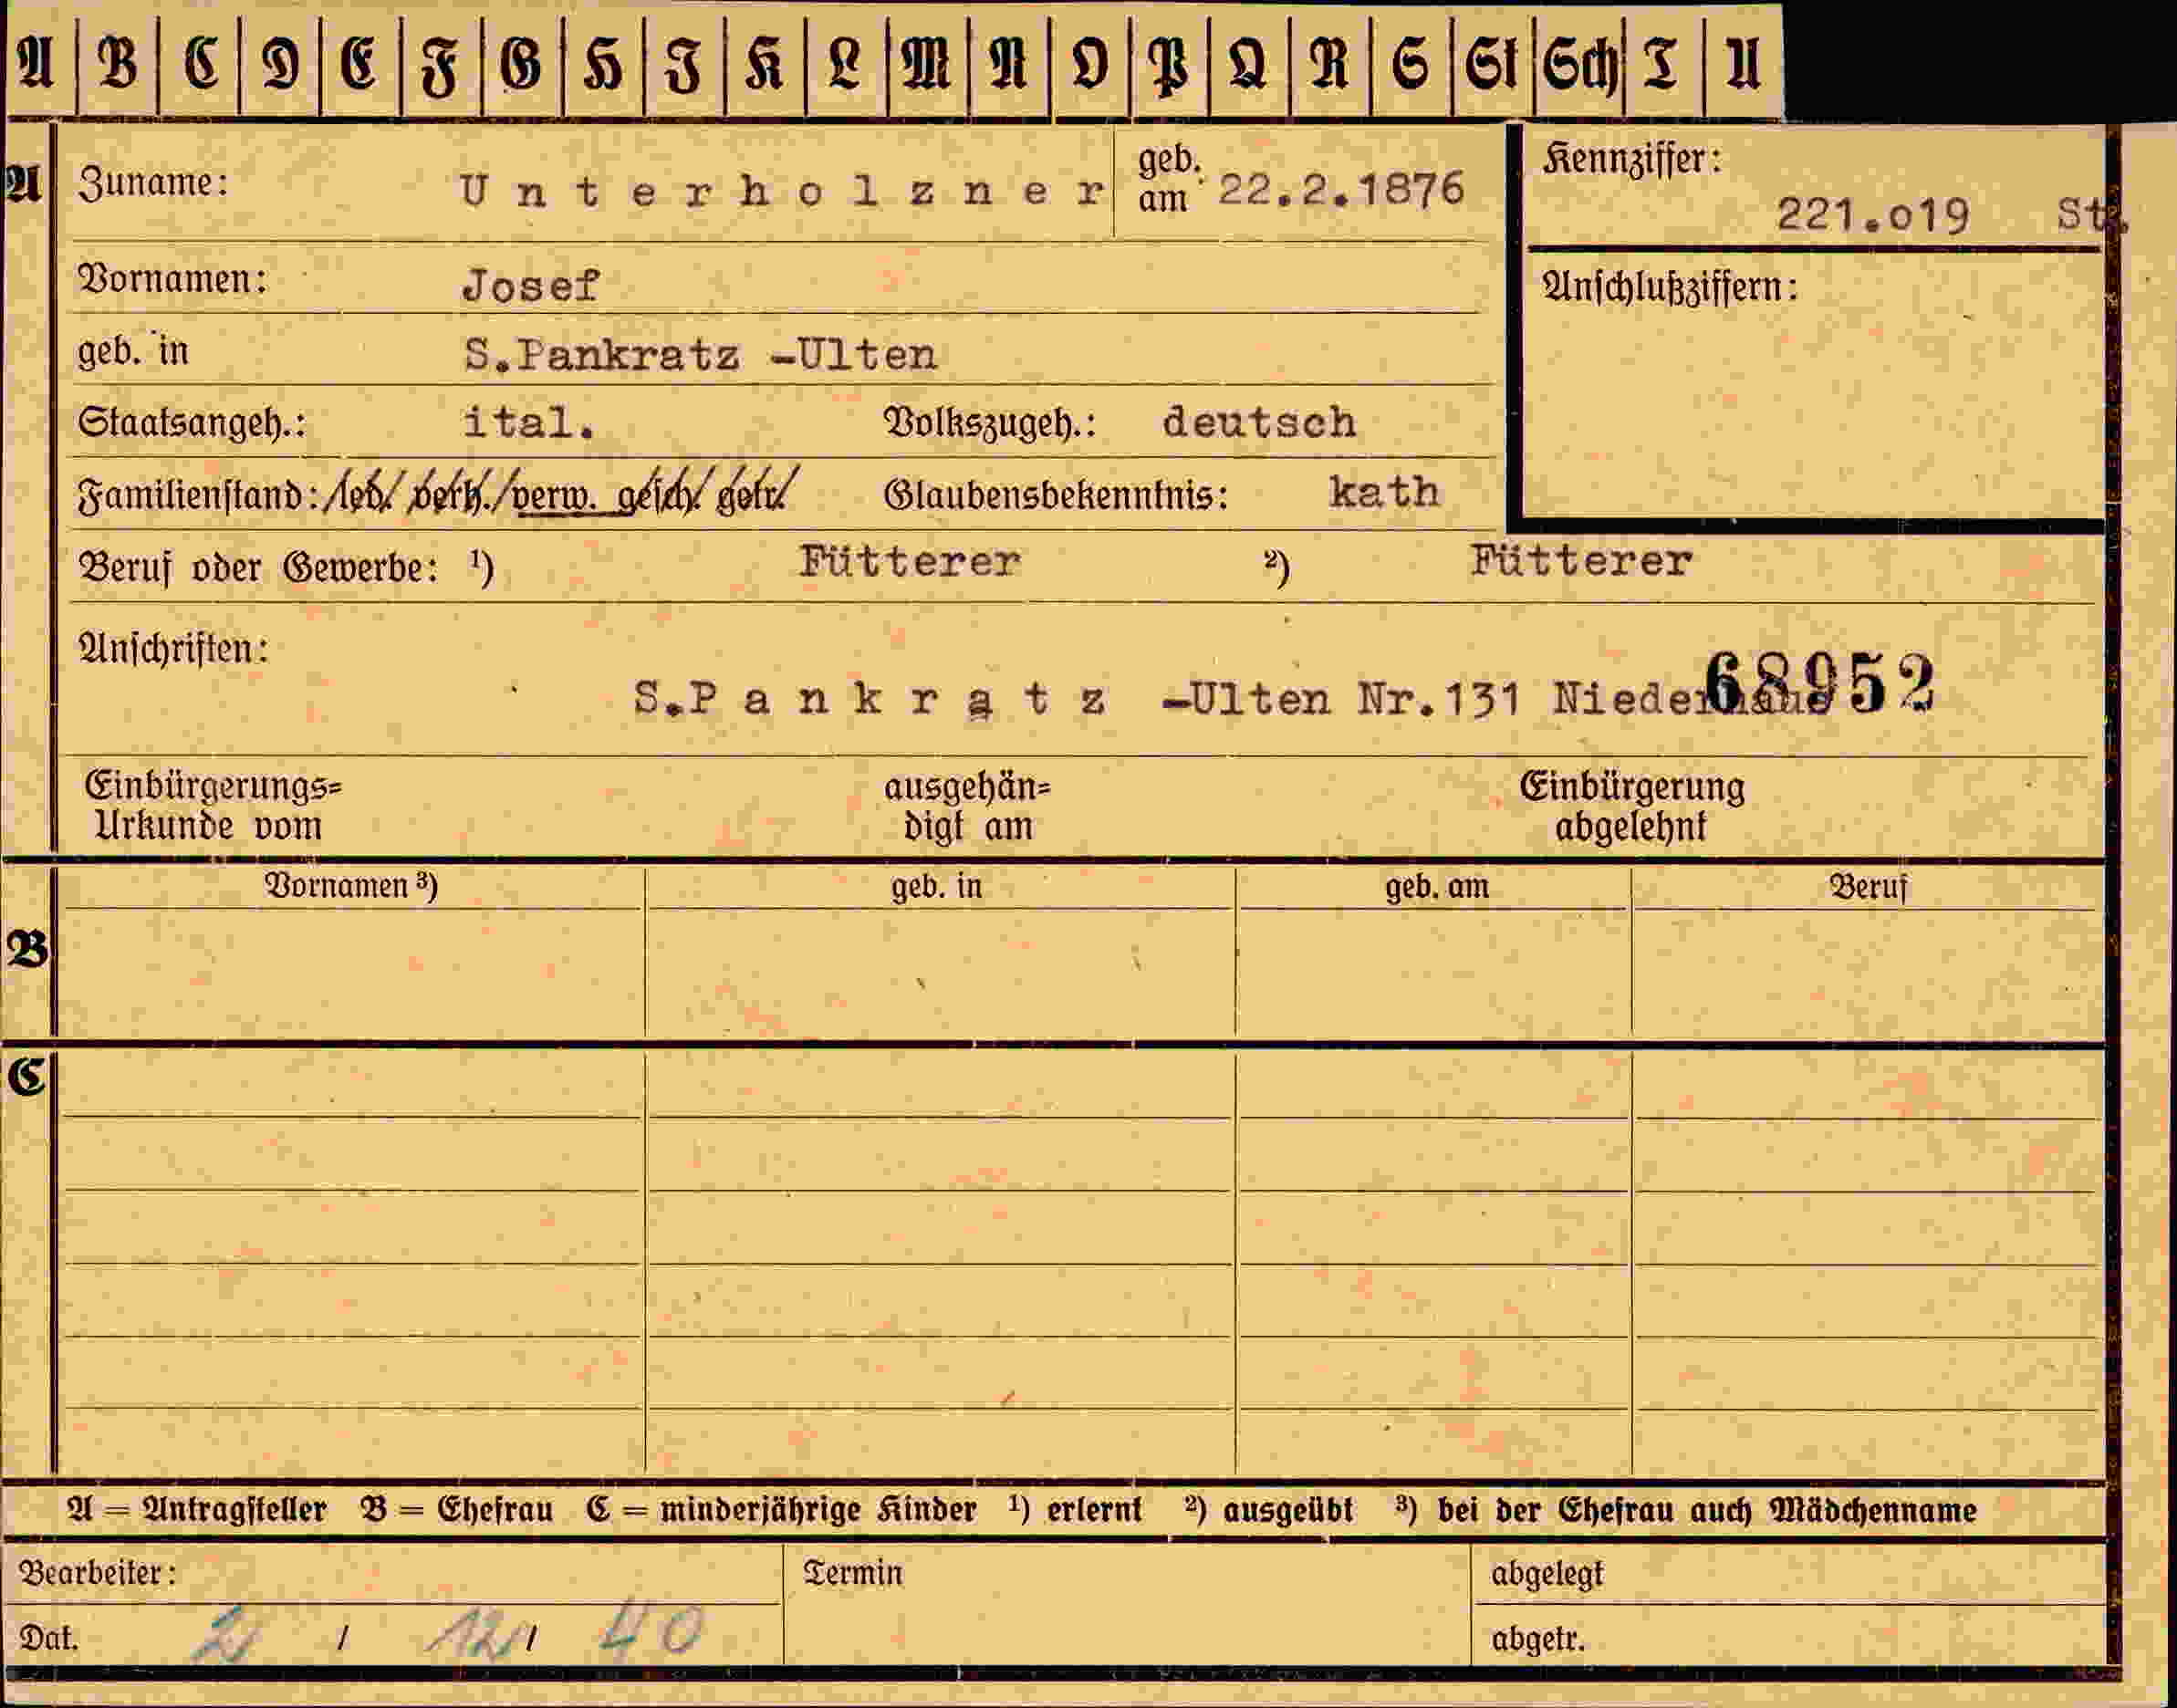 A B C D E F G H I K L M N O P Q R S St Sch T U
A Zuname: Unterholzner geb. am 22.2.1876 Kennziffer: 221.o19 St.
Vornamen: Josef Anschlußziffern:
geb. in S.Pankratz -Ulten
Staatsangeh.: ital. Volkszugeh.: deutsch
Familienstand: led. verh. verw. gesch. getr. Glaubensbekenntnis: kath
Beruf oder Gewerbe: ¹) Fütterer ²) Fütterer
Anschriften:
S.Pankratz -Ulten Nr.131 68952
Einbürgerungs= ausgehän= Einbürgerung
Urkunde vom digt am abgelehnt
Vornamen ³) geb. in geb. am Beruf
B
C
A = Antragsteller B = Ehefrau C = minderjährige Kinder ¹) erlernt ²) ausgeübt ³) bei der Ehefrau auch Mädchenname
Bearbeiter: Termin abgelegt
Dat. 2 / 12 / 40 abgetr.